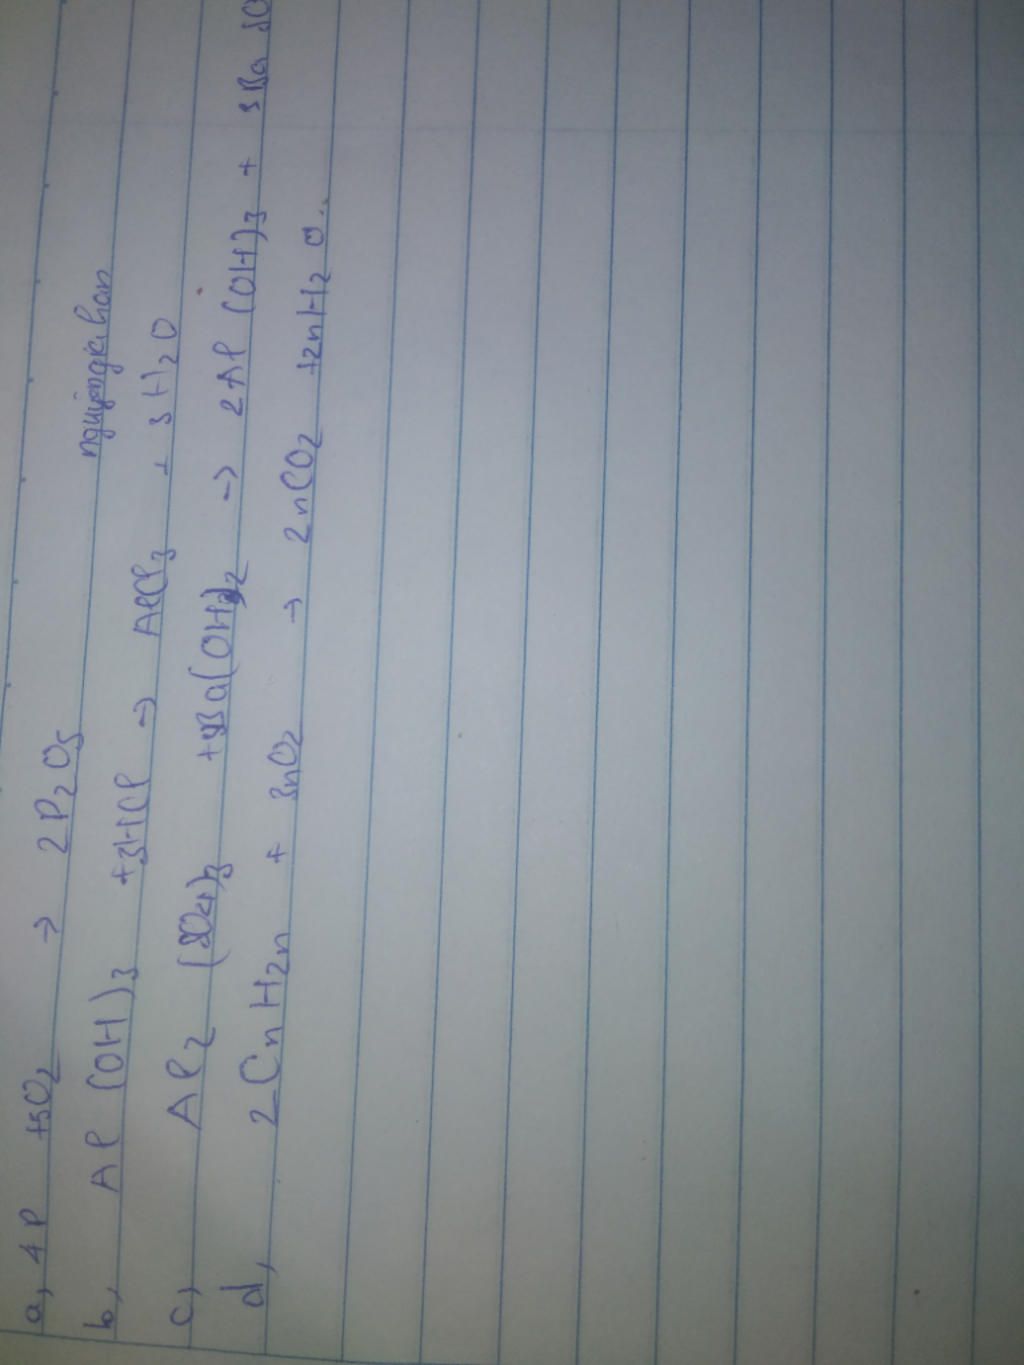 a, 4P +5O2 → 2P2O5
nguyongkihan
b, Al(OH)3 +3HCl → AlCl3 + 3H2O
c, Al2(SO4)3 +3Ba(OH)2 → 2Al(OH)3 + 3Ba SO
d, 2CnH2n + 3nO2 → 2nCO2 +2nH2O.